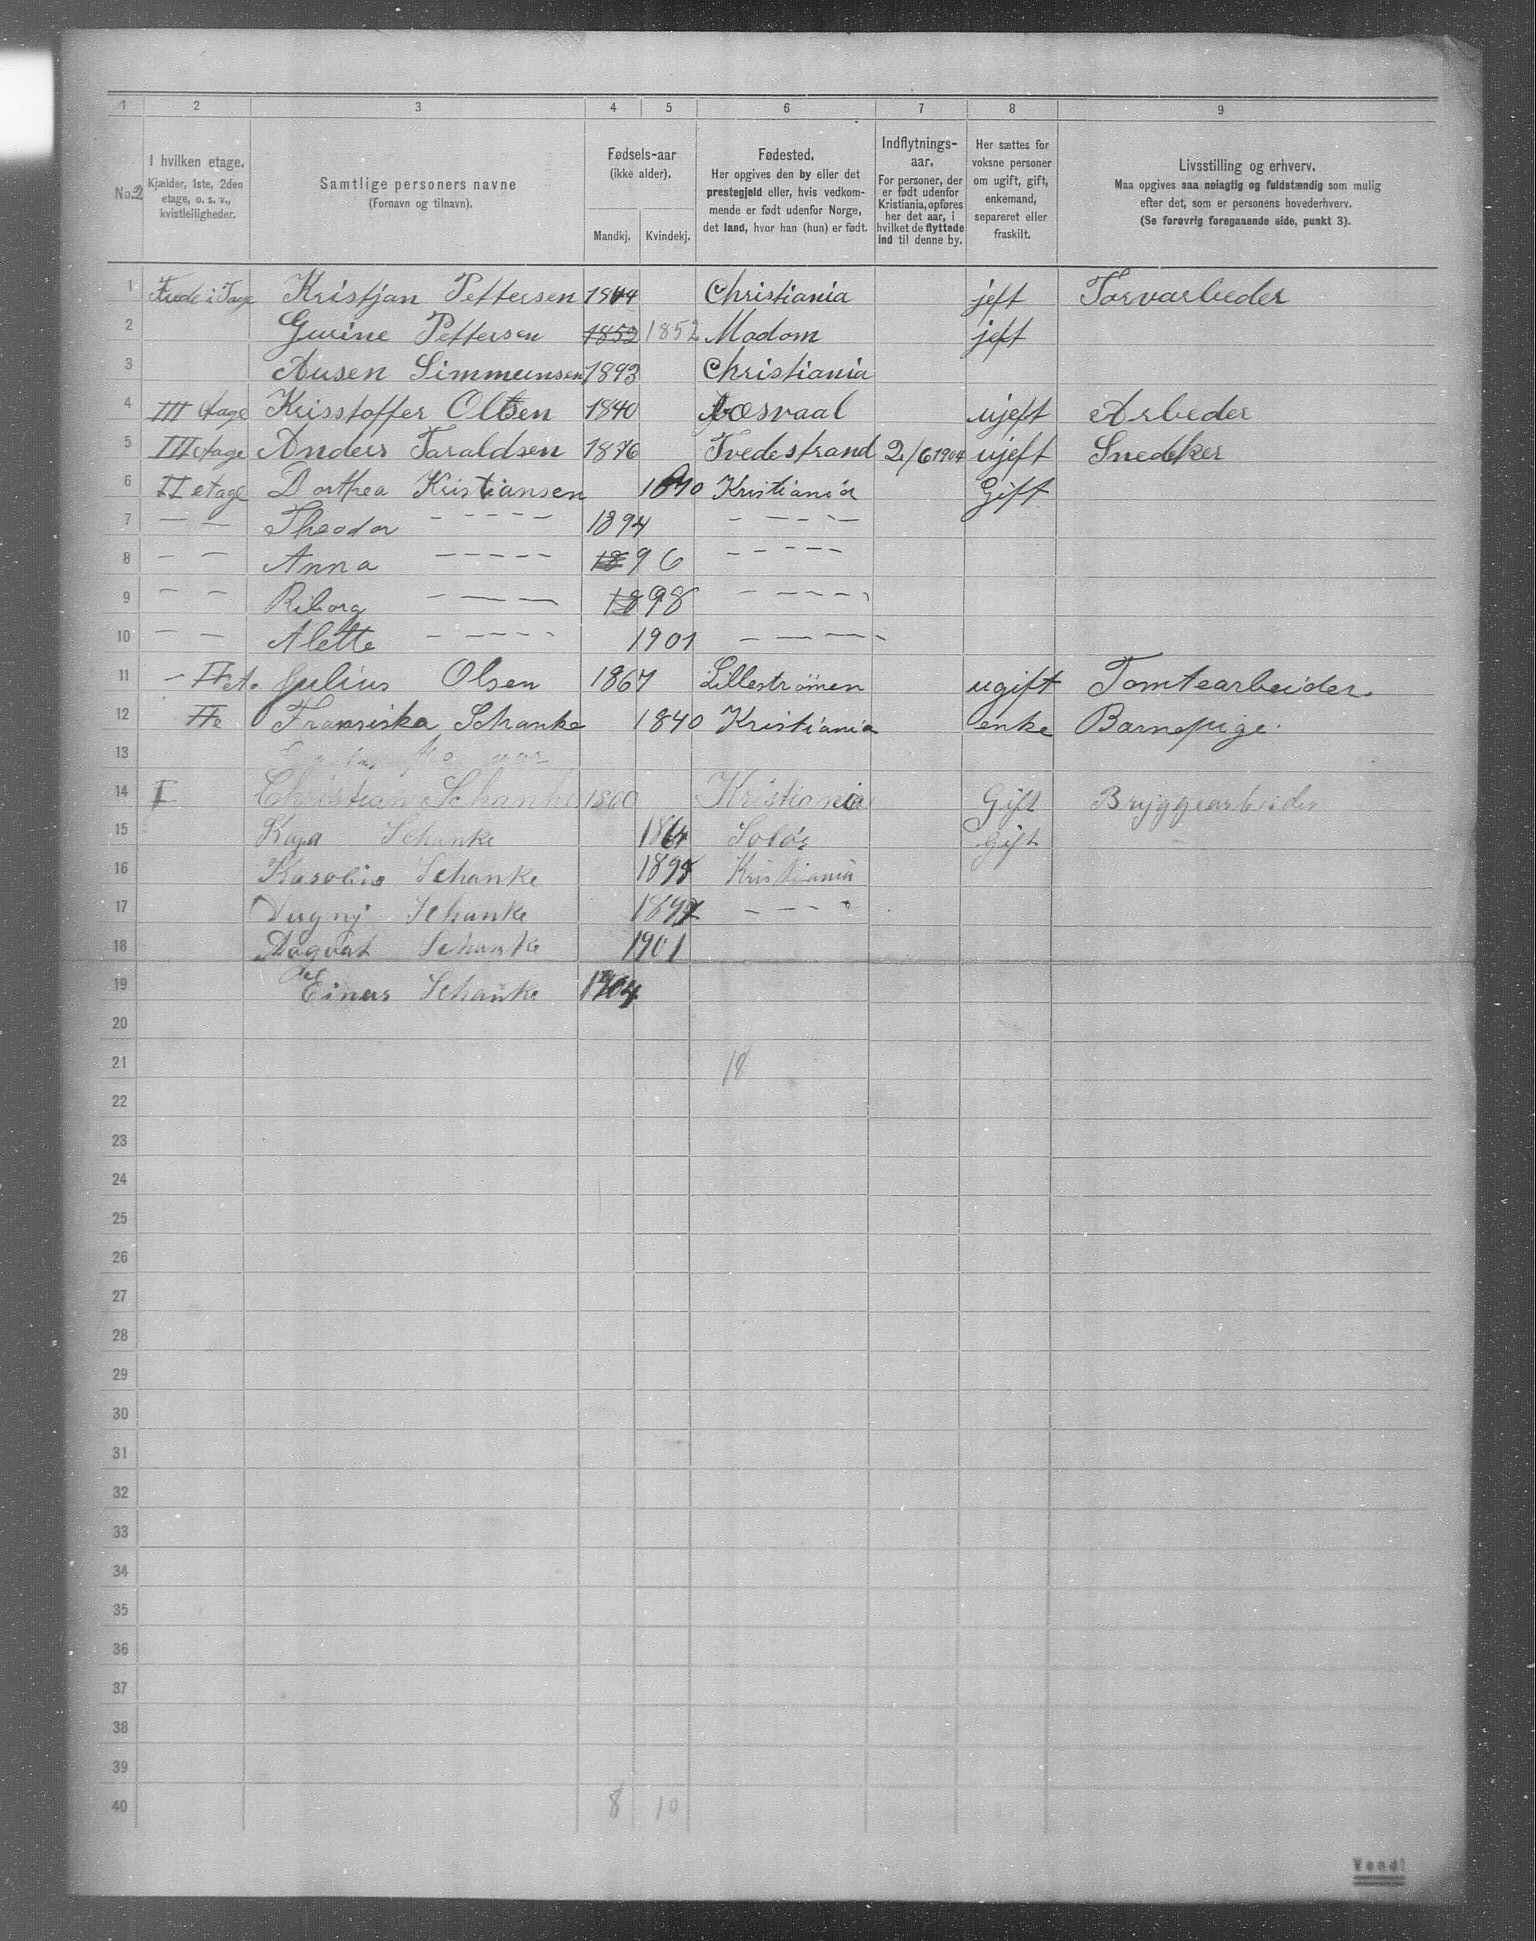 1 2 3 4 5 6 7 8 9
No. 2
I hvilken etage. Kjælder, 1ste, 2den etage, o. s. v., kvistleiligheder.
Samtlige personers navne (Fornavn og tilnavn).
Fødsels-aar (ikke alder). Mandkj. Kvindekj.
Fødested. Her opgives den by eller det prestegjeld eller, hvis vedkommende er født udenfor Norge, det land, hvor han (hun) er født.
Indflytnings-aar. For personer, der er født udenfor Kristiania, opføres her det aar, i hvilket de flyttede ind til denne by.
Her sættes for voksne personer om ugift, gift, enkemand, separeret eller fraskilt.
Livsstilling og erhverv. Maa opgives saa nøiagtig og fuldstændig som mulig efter det, som er personens hovederhverv. (Se forøvrig foregaaende side, punkt 3).
1 Kristjan Pettersen Christiania jeft Torvarbeder
2 Gurine Pettersen 1852 1852 Modom jeft
3 Ausen Simmunsen 1893 Christiania
4 III etage Krisstoffer Olsen 1840 ujeft Arbeder
5 III etage Anders Taraldsen 1876 Tvedestrand 2/6 1904 ujeft Snedker
6 II etage Dorthea Kristiansen 1870 Kristiania Gift
7 — — Theodor - - - - - 1894 - - - - -
8 — — Anna - - - - - 1896 - - - - -
9 — — Riborg - — — — 1898 - - - - -
10 — — Alette - — - - - 1901 - — — — -
11 - II et. Julius Olsen 1867 Lillestrømen ugift Tomtearbeider.
12 II e Fransiska Schanke 1840 Kristiania enke Barnepige.
13
14 I Christian Schanke 1860 Kristiania Gift Bryggearbeider
15 Kaja Schanke 1864 Soløs Gift
16 Karoline Schanke 1895 Kristiania
17 Schanke 1897 — - - -
18 Dagvat Schanke 1901
19 Einar Schanke 1904
20
21 18
22
23
24
25
26
27
28
29
30
31
32
33
34
35
36
37
38
39
40 8 10
Vend!